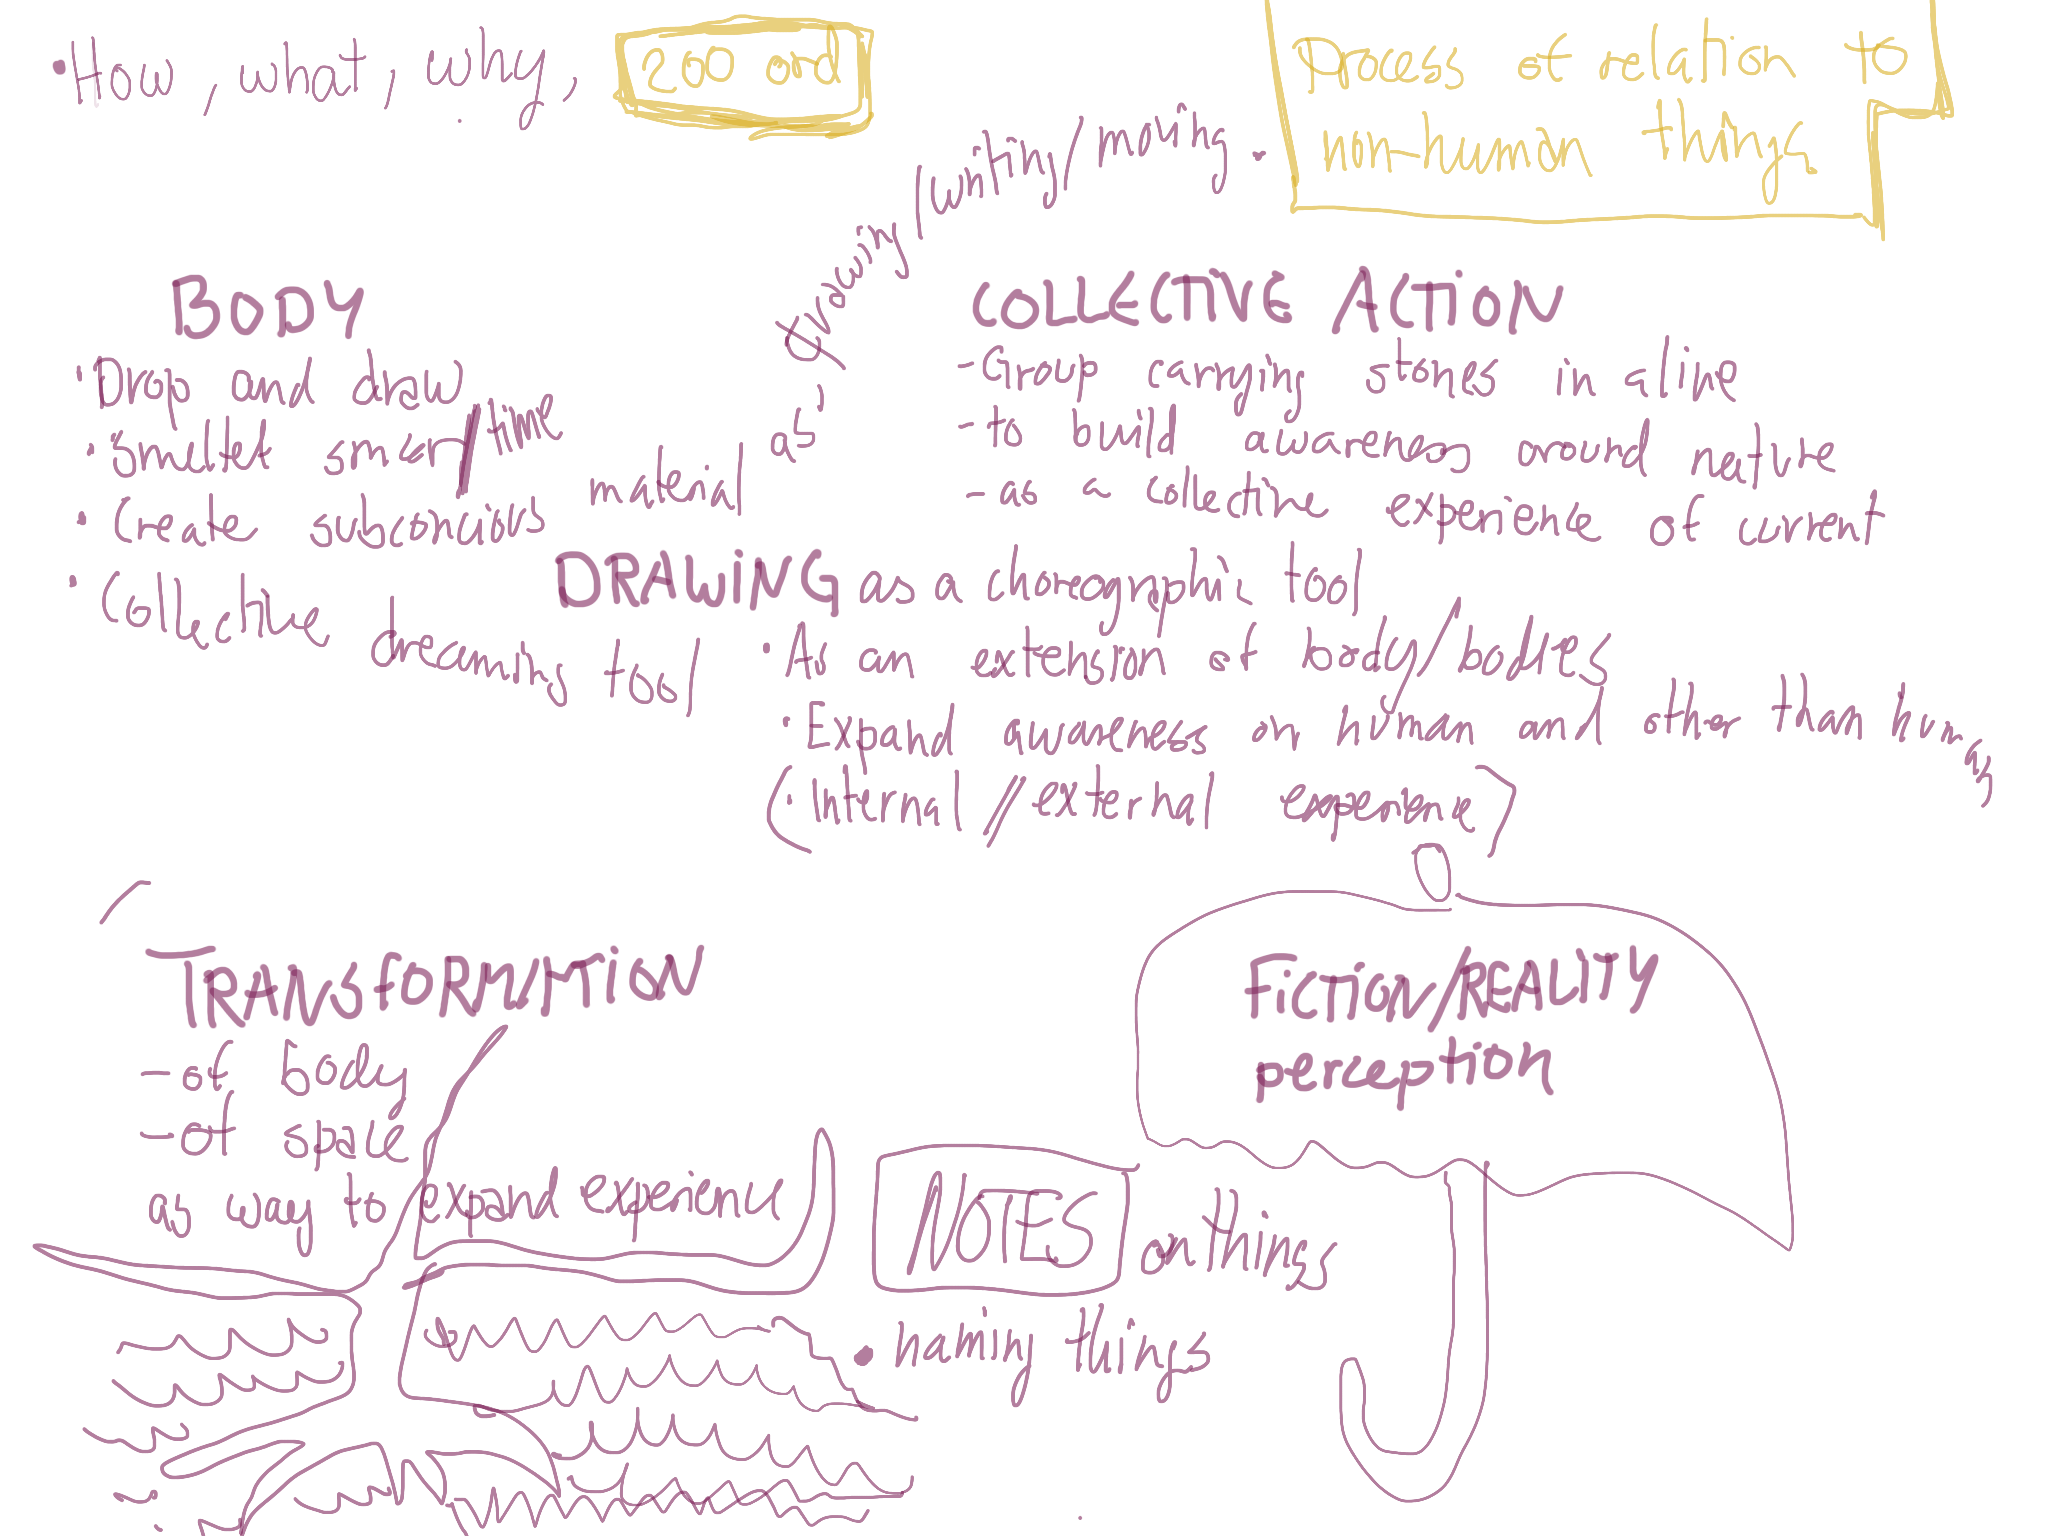 •How, what, why,
200 ord
Process of relation to
non-human things
BODY
•Drop and draw
•Smeltet smør/time
•Create subconcious material as, drawing/writing/moving.
•Collective dreaming tool
COLLECTIVE ACTION
-Group carrying stones in a line
-to build awareness around nature
-as a collective experience of current
DRAWING as a choreographic tool
•As an extension of body/bodies
•Expand awareness on human and other than human
(•Internal//external experience)
TRANSFORMATION
-of body
-of space
as way to expand experience
FICTION/REALITY
perception
NOTES on things
•naming things